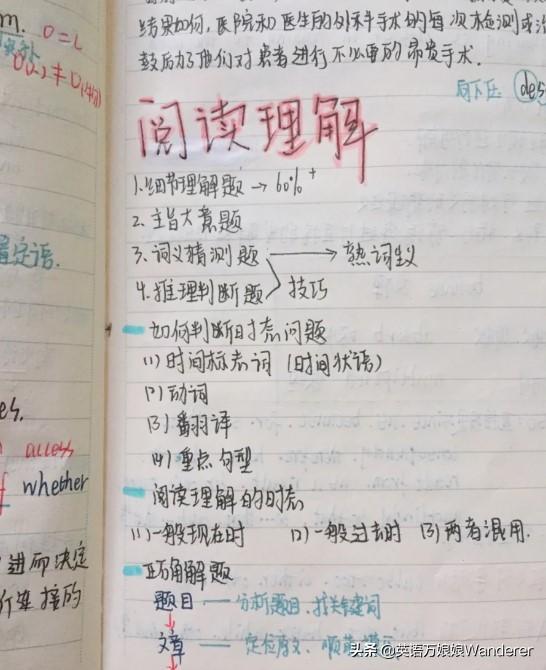 m. O=L
O(0,0)≠
结果如何,医院和医生的外科手术的每次检测或治
鼓励了他们对患者进行不必要的昂贵手术.
des
阅读理解
1.细节理解题 → 60%+
2.主旨大意题
3.词义猜测题 → 熟词生义
4.推理判断题 技巧
如何判断时态问题
(1)时间标志词 (时间状语)
(2)动词
(3)翻译
(4)重点句型
阅读理解的时态
(1)一般现在时 (2)一般过去时 (3)两者混用.
正确解题
题目 — 分析题目,找关键词
文章 — 定位
置定语.
es.
access
f whether
进而决定
行连接的
头条 @英语万娘娘Wanderer